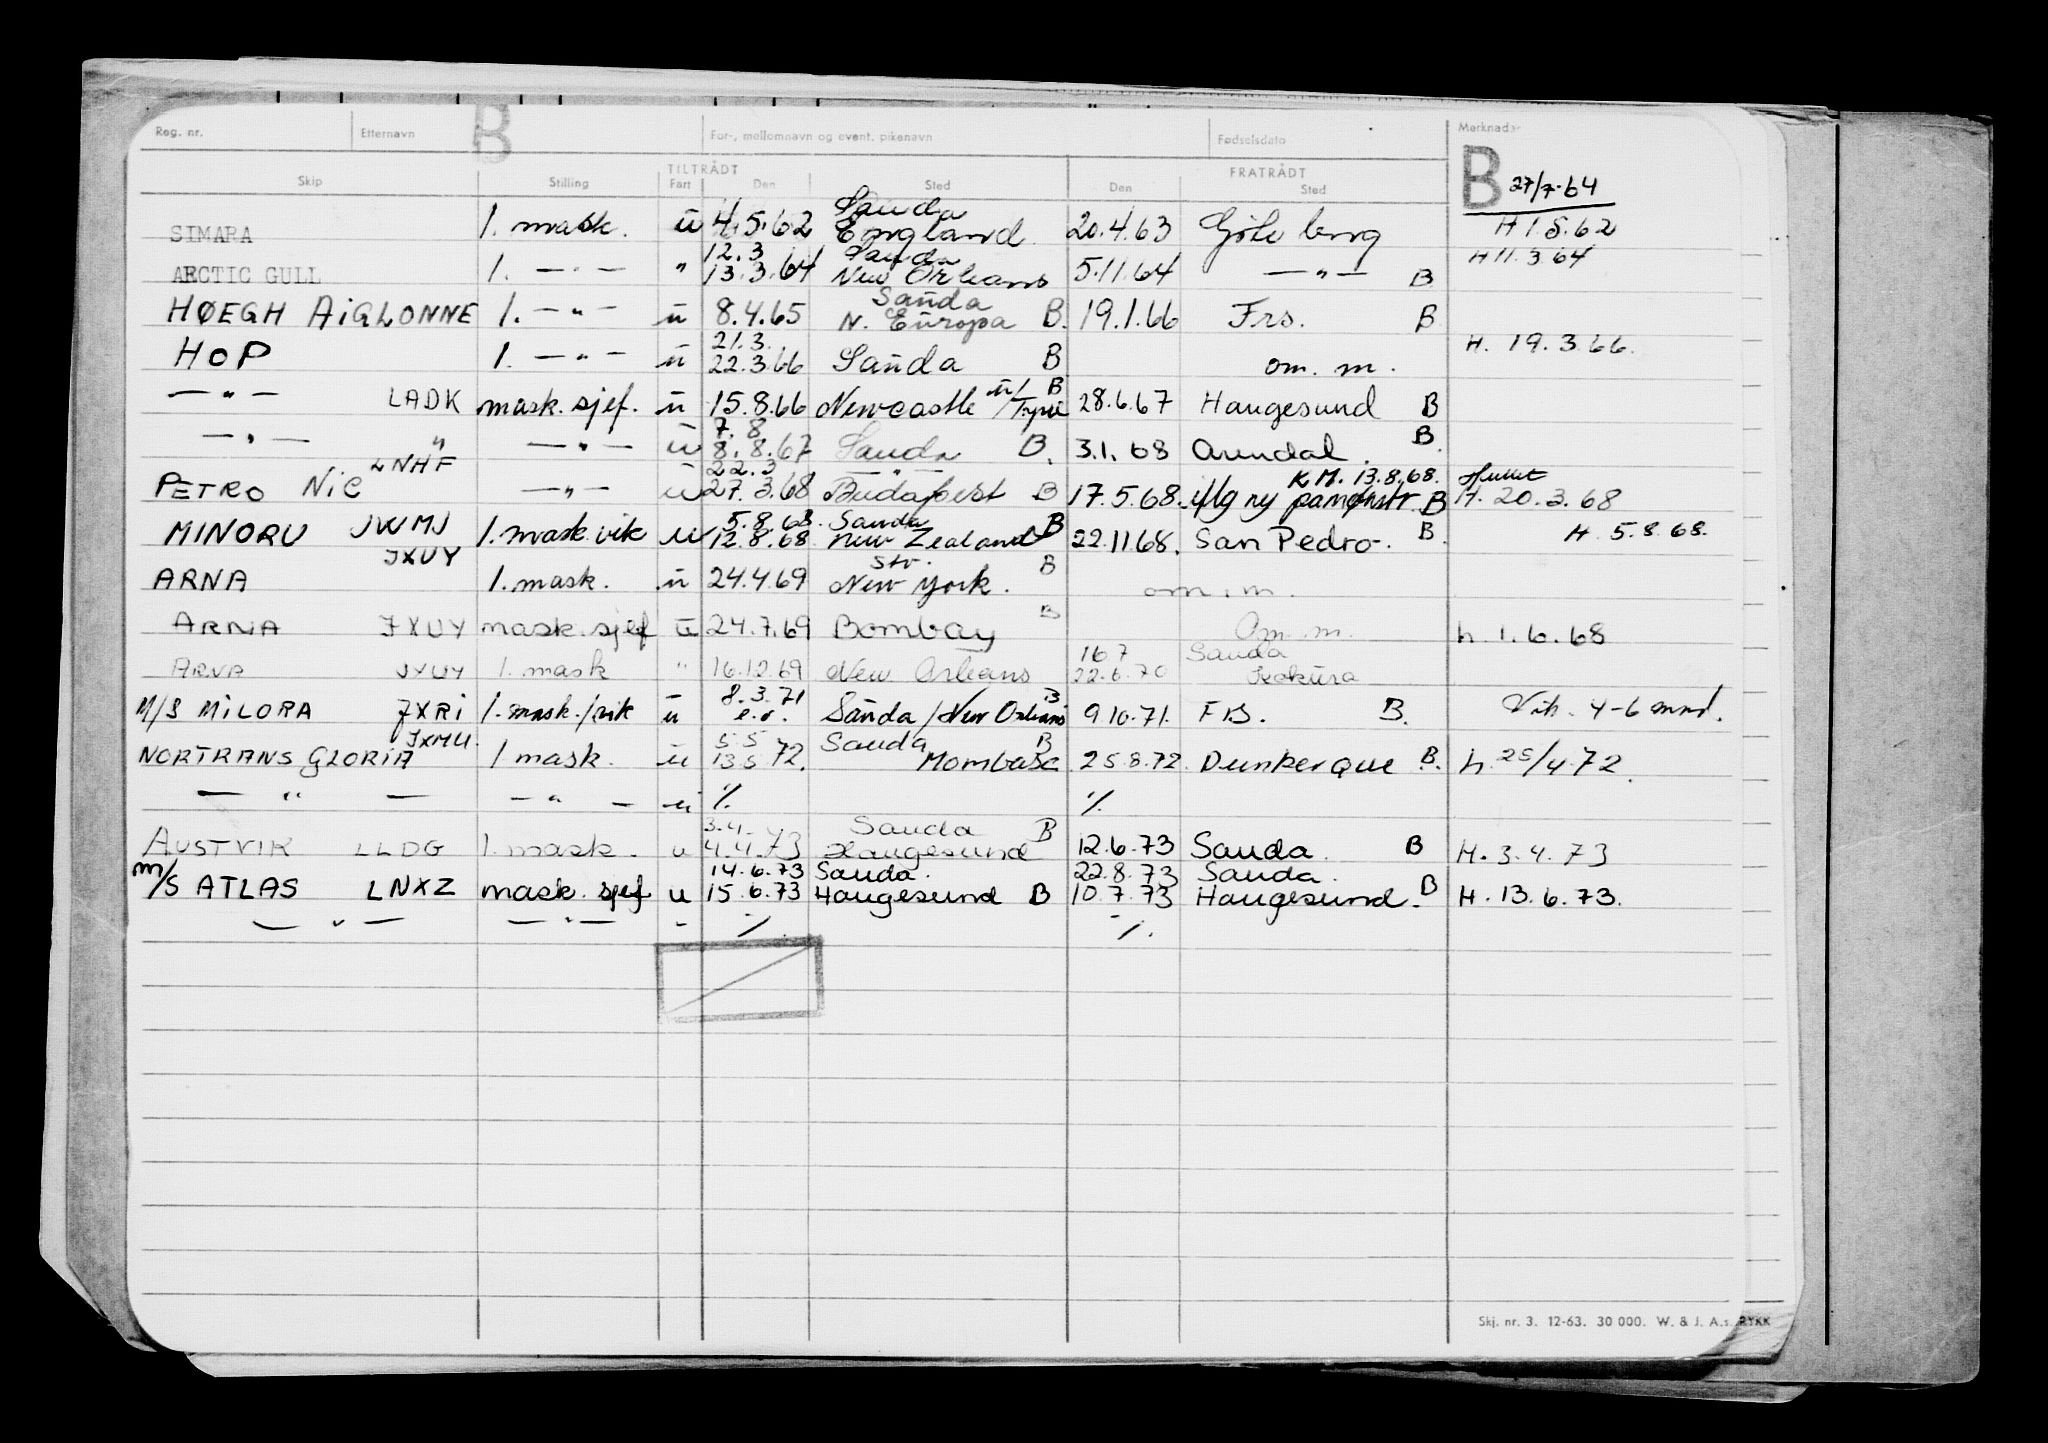 Reg. nr. Etternavn B For-, mellomnavn og event. pikenavn Fødselsdato Merknader
TILTRÅDT FRATRÅDT
Skip Stilling Fart Den Sted Den Sted B 27/7-64
Sauda
SIMARA 1. mask. ü 4.5.62 England 20.4.63 Göteborg H 1.5.62
12.3 Sauda H 11.3.64
ARCTIC GULL 1. — " — " 13.3.64 New Orleans 5.11.64 — " — B
Sauda
HØEGH AIGLONNE 1. — " — ü 8.4.65 N. Europa B. 19.1.66 Frs. B
21.3. H. 19.3.66.
HOP 1. — " — ü 22.3.66 Sauda B om. m.
— " — LADK mask. sjef. ü 15.8.66 Newcastle ü/Tyne B 28.6.67 Haugesund B
7.8
— " — " — " — ü 8.8.67 Sauda B. 3.1.68 Arendal. B
LNHF 22.3 — " — K.M. 13.8.68.
PETRO NIC — " — ü 27.3.68 Budapest B 17.5.68. iflg ny pamønstr. B H. 20.3.68
5.8.68. Sauda
MINORU JWMJ 1. mask. vik ü 12.8.68 New Zealand B 22.11.68. San Pedro. B. H. 5.8.68.
JXUY Stv. B
ARNA 1. mask. ü 24.4.69 New York. om. m.
ARNA JXUY mask. sjef ü 24.7.69 Bombay B Om. m. h. 1.6.68
16.7 Sauda
ARNA JXUY 1. mask " 16.12.69 New Orleans 22.6.70 Kokura
8.3.71 B
M/S MILORA JXRI 1. mask./vik ü e.o. Sauda/New Orleans 9.10.71. FrS. B. Vik. 4-6 mnd.
JXMU. 5.5 Sauda B
NORTRANS GLORIA 1 mask. ü 13.5.72. Mombasa 25.8.72. Dunkerque B. h. 25/4.72.
— " — — " — ü ./. ./.
3.4. Sauda B
AUSTVIK LLDG 1. mask. u 4.4.73 Haugesund 12.6.73 Sauda. B H. 3.4.73
14.6.73 Sauda. 22.8.73 Sauda.
m/S ATLAS LNXZ mask. sjef u 15.6.73 Haugesund B 10.7.73 Haugesund. B H. 13.6.73.
— " — — " — - ./. ./.
Skj. nr. 3. 12-63. 30 000. W. & J. A.s. RYKK